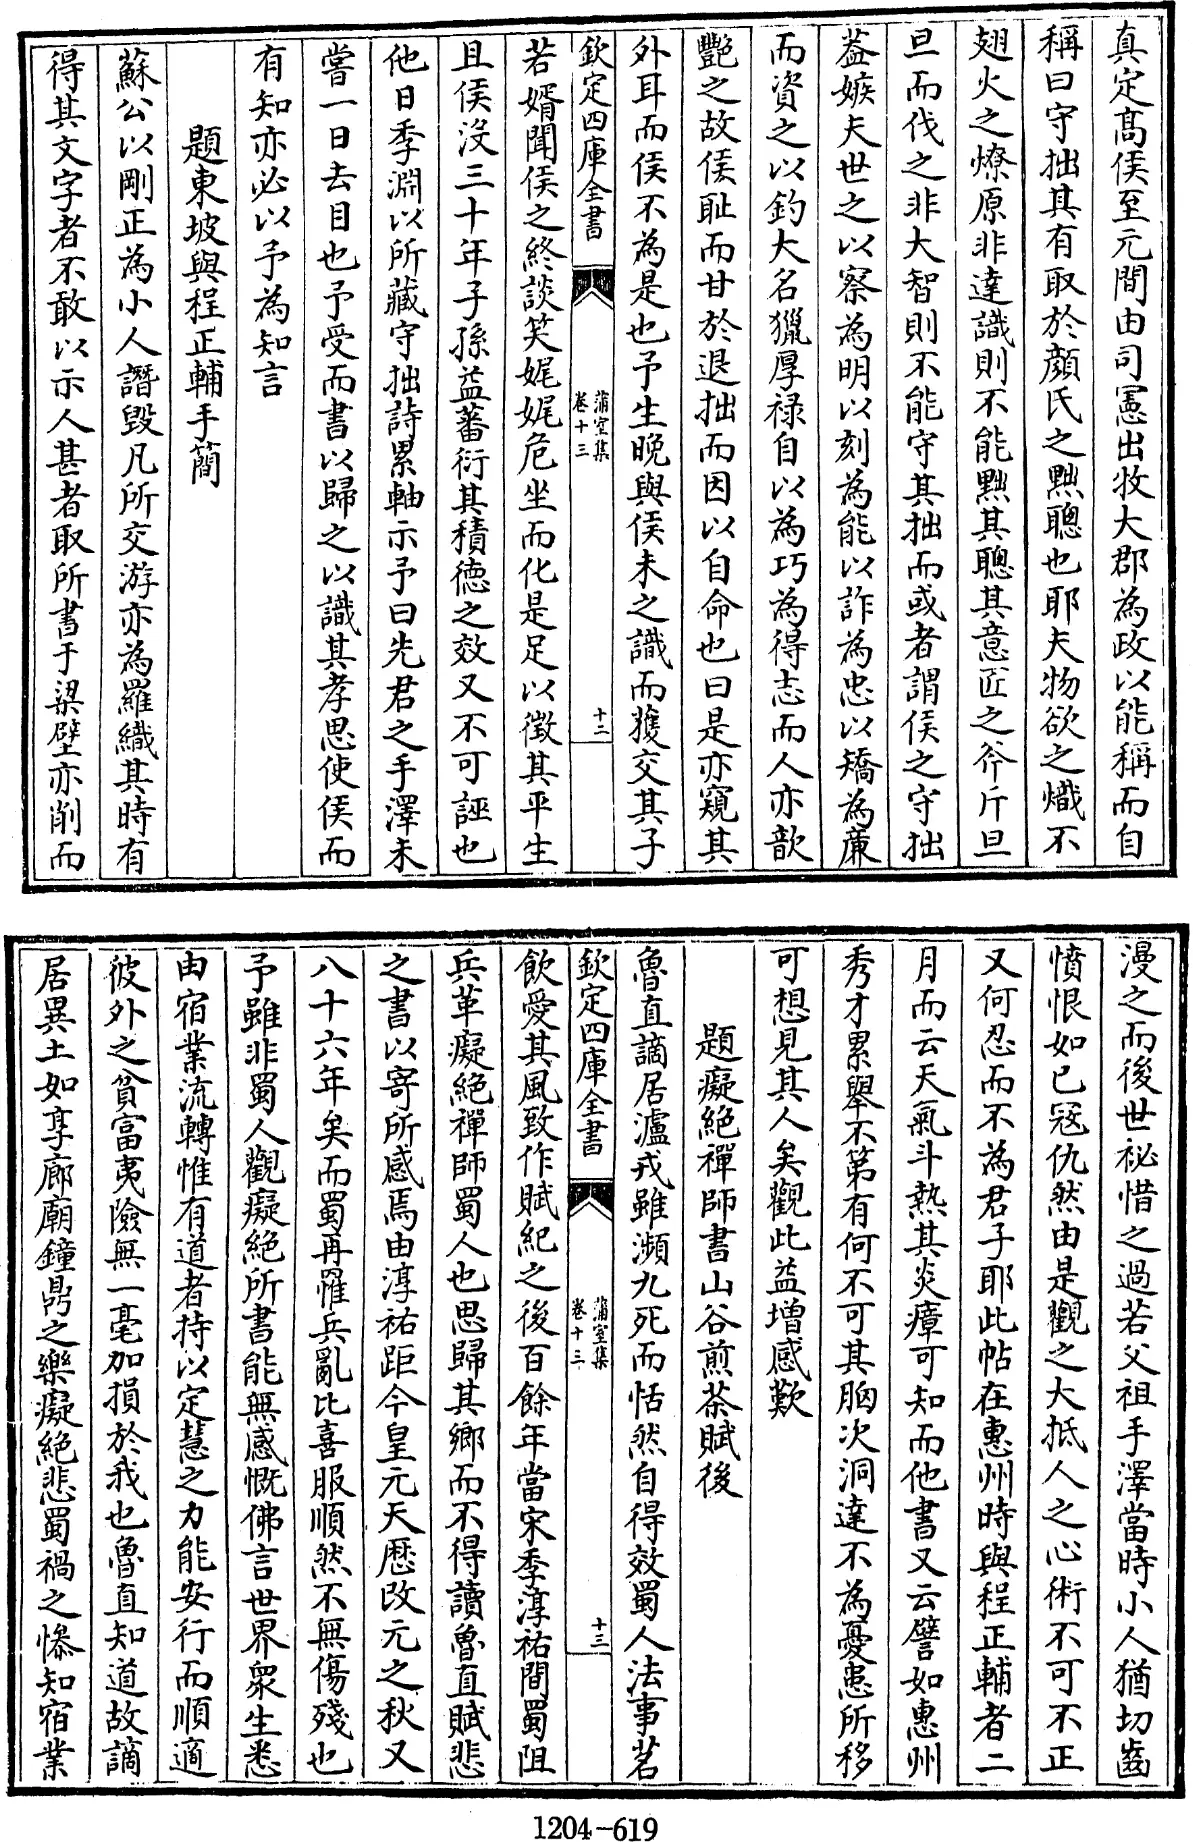 真定髙侯至元間由司憲出牧大郡為政以能稱而自
稱曰守拙其有取於顔氏之黜聰也耶夫物欲之熾不
翅火之燎原非達識則不能黜其聰其意匠之斧斤旦
旦而伐之非大智則不能守其拙而或者謂侯之守拙
葢嫉夫世之以察為明以刻為能以詐為忠以矯為廉
而資之以釣大名獵厚禄自以為巧為得志而人亦歆
艷之故侯耻而甘於退拙而因以自命也曰是亦窺其
外耳而侯不為是也予生晚與侯未之識而獲交其子
欽定四庫全書
蒲室集
卷十三
十二
若婿聞侯之終談笑娓娓危坐而化是足以徵其平生
且侯沒三十年子孫益蕃衍其積德之效又不可誣也
他日季淵以所藏守拙詩累軸示予曰先君之手澤未
嘗一日去目也予受而書以歸之以識其孝思使侯而
有知亦必以予為知言
題東坡與程正輔手簡
蘇公以剛正為小人譖毀凡所交游亦為羅織其時有
得其文字者不敢以示人甚者取所書于梁壁亦削而
漫之而後世祕惜之過若父祖手澤當時小人猶切齒
憤恨如已冦仇然由是觀之大抵人之心術不可不正
又何忍而不為君子耶此帖在惠州時與程正輔者二
月而云天氣斗熱其炎瘴可知而他書又云譬如惠州
秀才累舉不第有何不可其胸次洞達不為憂患所移
可想見其人矣觀此益增感歎
題癡絶禪師書山谷煎茶賦後
魯直謫居瀘戎雖瀕九死而恬然自得效蜀人法事茗
欽定四庫全書
蒲室集
卷十三
十三
飲愛其風致作賦紀之後百餘年當宋季淳祐間蜀阻
兵革癡絶禪師蜀人也思歸其鄉而不得讀魯直賦悲
之書以寄所感焉由淳祐距今皇元天厯改元之秋又
八十六年矣而蜀再罹兵亂比喜服順然不無傷殘也
予雖非蜀人觀癡絶所書能無感慨佛言世界衆生悉
由宿業流轉惟有道者持以定慧之力能安行而順適
彼外之貧富夷險無一毫加損於我也魯直知道故謫
居異土如享廊廟鐘鼎之樂癡絶悲蜀禍之慘知宿業
1204-619